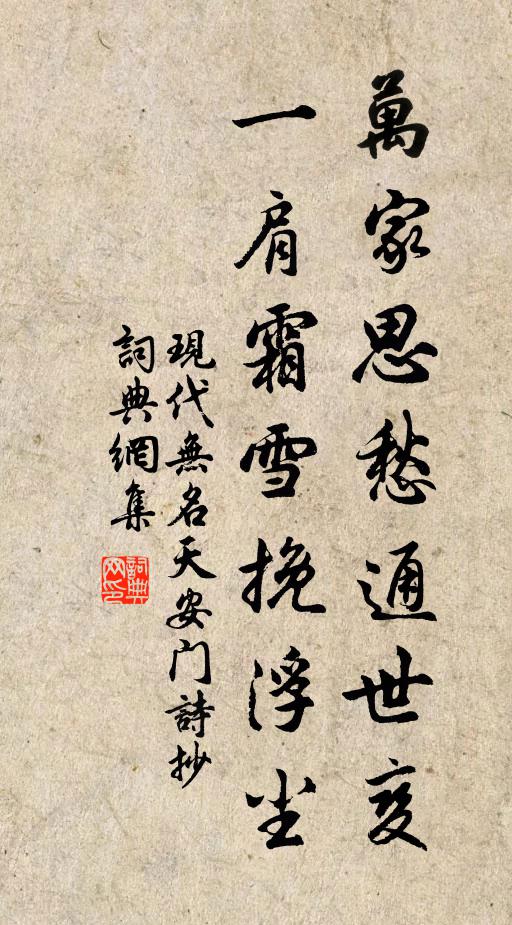 萬家思愁通世变
一肩霜雪挽浮尘
現代無名天安门詩抄
詞典網集
詞典网印